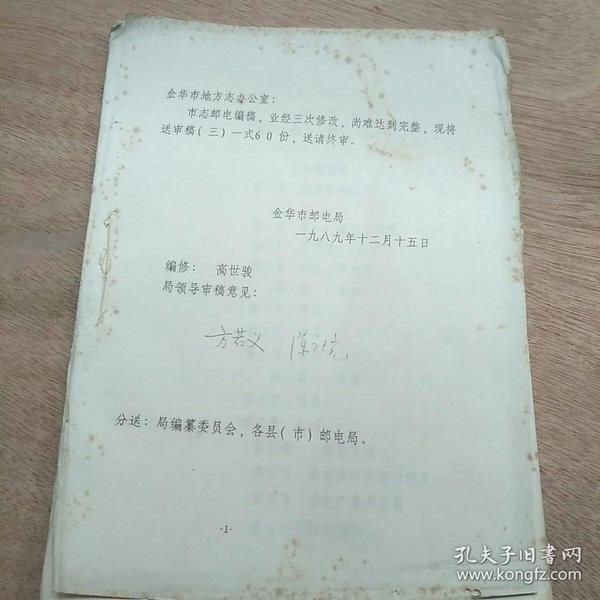 金华市地方志办公室：
市志邮电编稿，业经三次修改，尚难达到完整，现将
送审稿（三）一式60份，送请终审。
金华市邮电局
一九八九年十二月十五日
编修： 高世骏
局领导审稿意见：
分送：局编纂委员会，各县（市）邮电局。
-1-
孔夫子旧书网
www.kongfz.com